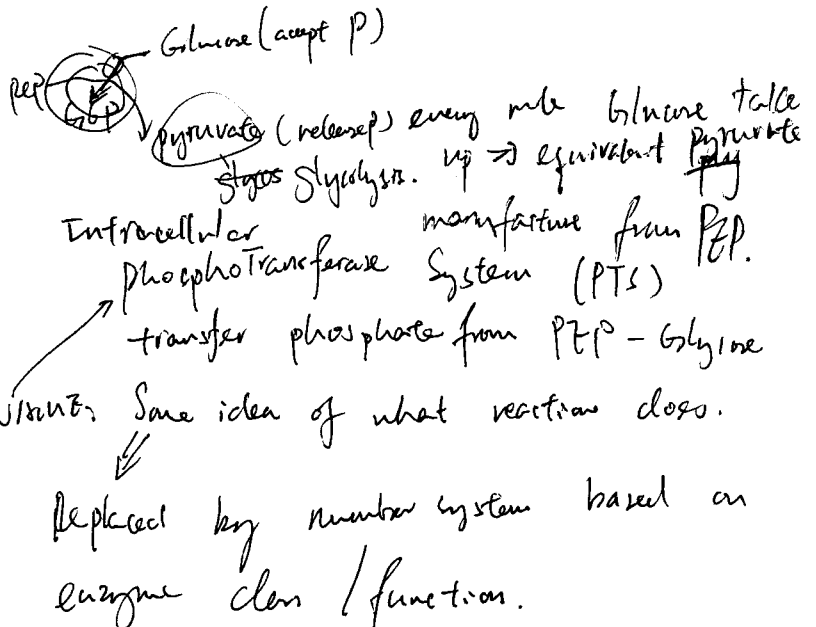 Glucose (accept P)
PEP
G6P
pyruvate (release P) every mole Glucose take
glycolysis. up → equivalent pyruvate
Intracellular manufacture from PEP.
phosphoTransferase System (PTS)
transfer phosphate from PEP - Glucose
Some idea of what reaction does.
Replaced by number system based on
enzyme class / function.